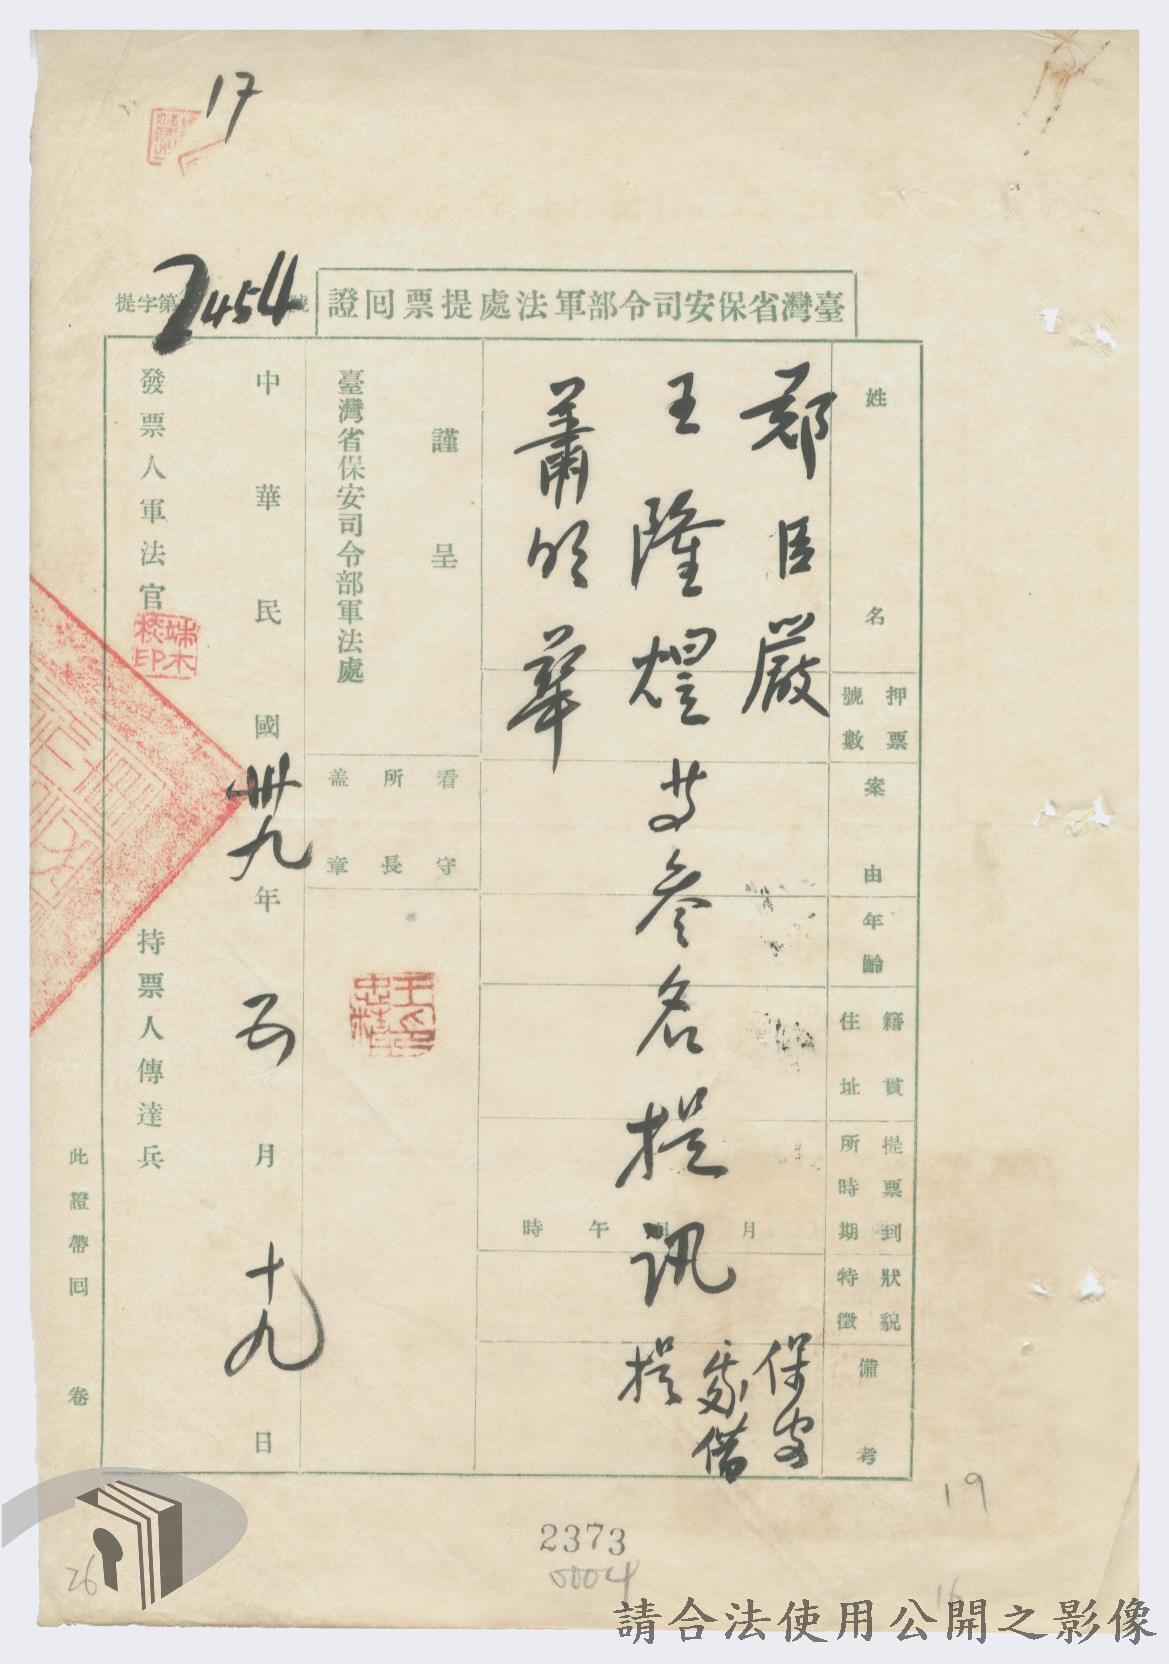 17
臺灣省保安司令部軍法處提票回證
提字第2454號
姓名
押票號數
案由
年齡
籍貫住址
提票到所時期
狀貌特徵
備考
鄭臣嚴
王隆焜等叁名提訊
蕭明華
月 日 午 時
保安
處借
提
謹呈
臺灣省保安司令部軍法處
看守所長蓋章
王忠精印
中華民國卅九年五月十九日
發票人軍法官
端木棪印
持票人傳達兵
此證帶回 卷
19
2373
0004
26
16
請合法使用公開之影像